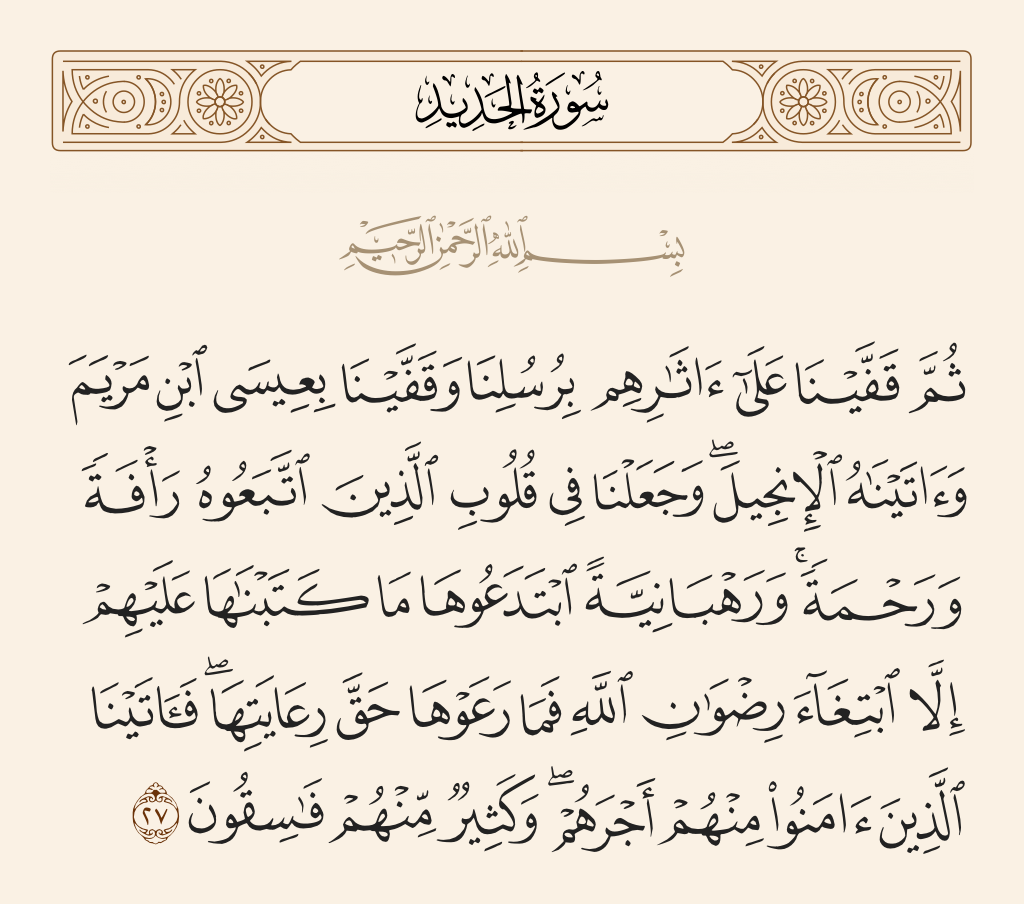 سُورَةُ الحَدِيدِ
بِسْمِ ٱللَّهِ ٱلرَّحْمَٰنِ ٱلرَّحِيمِ
ثُمَّ قَفَّيْنَا عَلَىٰٓ ءَاثَـٰرِهِم بِرُسُلِنَا وَقَفَّيْنَا بِعِيسَى ٱبْنِ مَرْيَمَ
وَءَاتَيْنَـٰهُ ٱلْإِنجِيلَ ۖ وَجَعَلْنَا فِى قُلُوبِ ٱلَّذِينَ ٱتَّبَعُوهُ رَأْفَةً
وَرَحْمَةً ۚ وَرَهْبَانِيَّةً ٱبْتَدَعُوهَا مَا كَتَبْنَـٰهَا عَلَيْهِمْ
إِلَّا ٱبْتِغَآءَ رِضْوَٰنِ ٱللَّهِ فَمَا رَعَوْهَا حَقَّ رِعَايَتِهَا ۖ فَـَٔاتَيْنَا
ٱلَّذِينَ ءَامَنُوا۟ مِنْهُمْ أَجْرَهُمْ ۖ وَكَثِيرٌ مِّنْهُمْ فَـٰسِقُونَ ٢٧